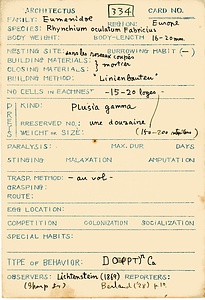 ARCHITECTUS 334 CARD NO.
FAMILY: Eumenidae REGION: Europe
SPECIES: Rhynchium oculatum Fabricius
BODY WEIGHT: BODY-LENGTH 16-20mm
NESTING SITE: annales roseaux coupés BURROWING HABIT (-)
BUILDING MATERIALS: } mortier
CLOSING MATERIALS:
BUILDING METHOD: "Linienbauten"
NO CELLS IN EACH NEST -15-20 loges-
PREY KIND: Plusia gamma
PRESERVED NO.: une douzaine
WEIGHT OR SIZE: (150-200
PARALYSIS: MAX. DUR DAYS
STINGING MALAXATION AMPUTATION
TRASP. METHOD: - au vol -
GRASPING:
ROUTE:
EGG LOCATION:
COMPETITION COLONIZATION SOCIALIZATION
SPECIAL HABITS:
TYPE OF BEHAVIOR:
OBSERVERS: Lichtenstein (1869) REPORTERS:
Berland ('28) p.